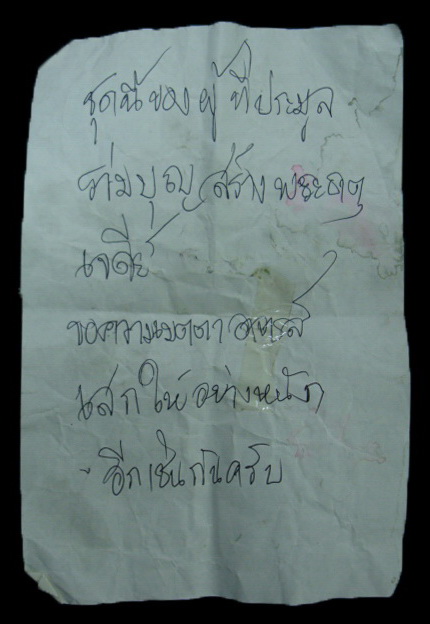 ชุดนี้ของผู้ที่ประมูล
ร่วมบุญสร้างพระธาตุ
เจดีย์
ขอความเมตตา
เสกให้อย่างหนัก
อีกเช่นกันครับ